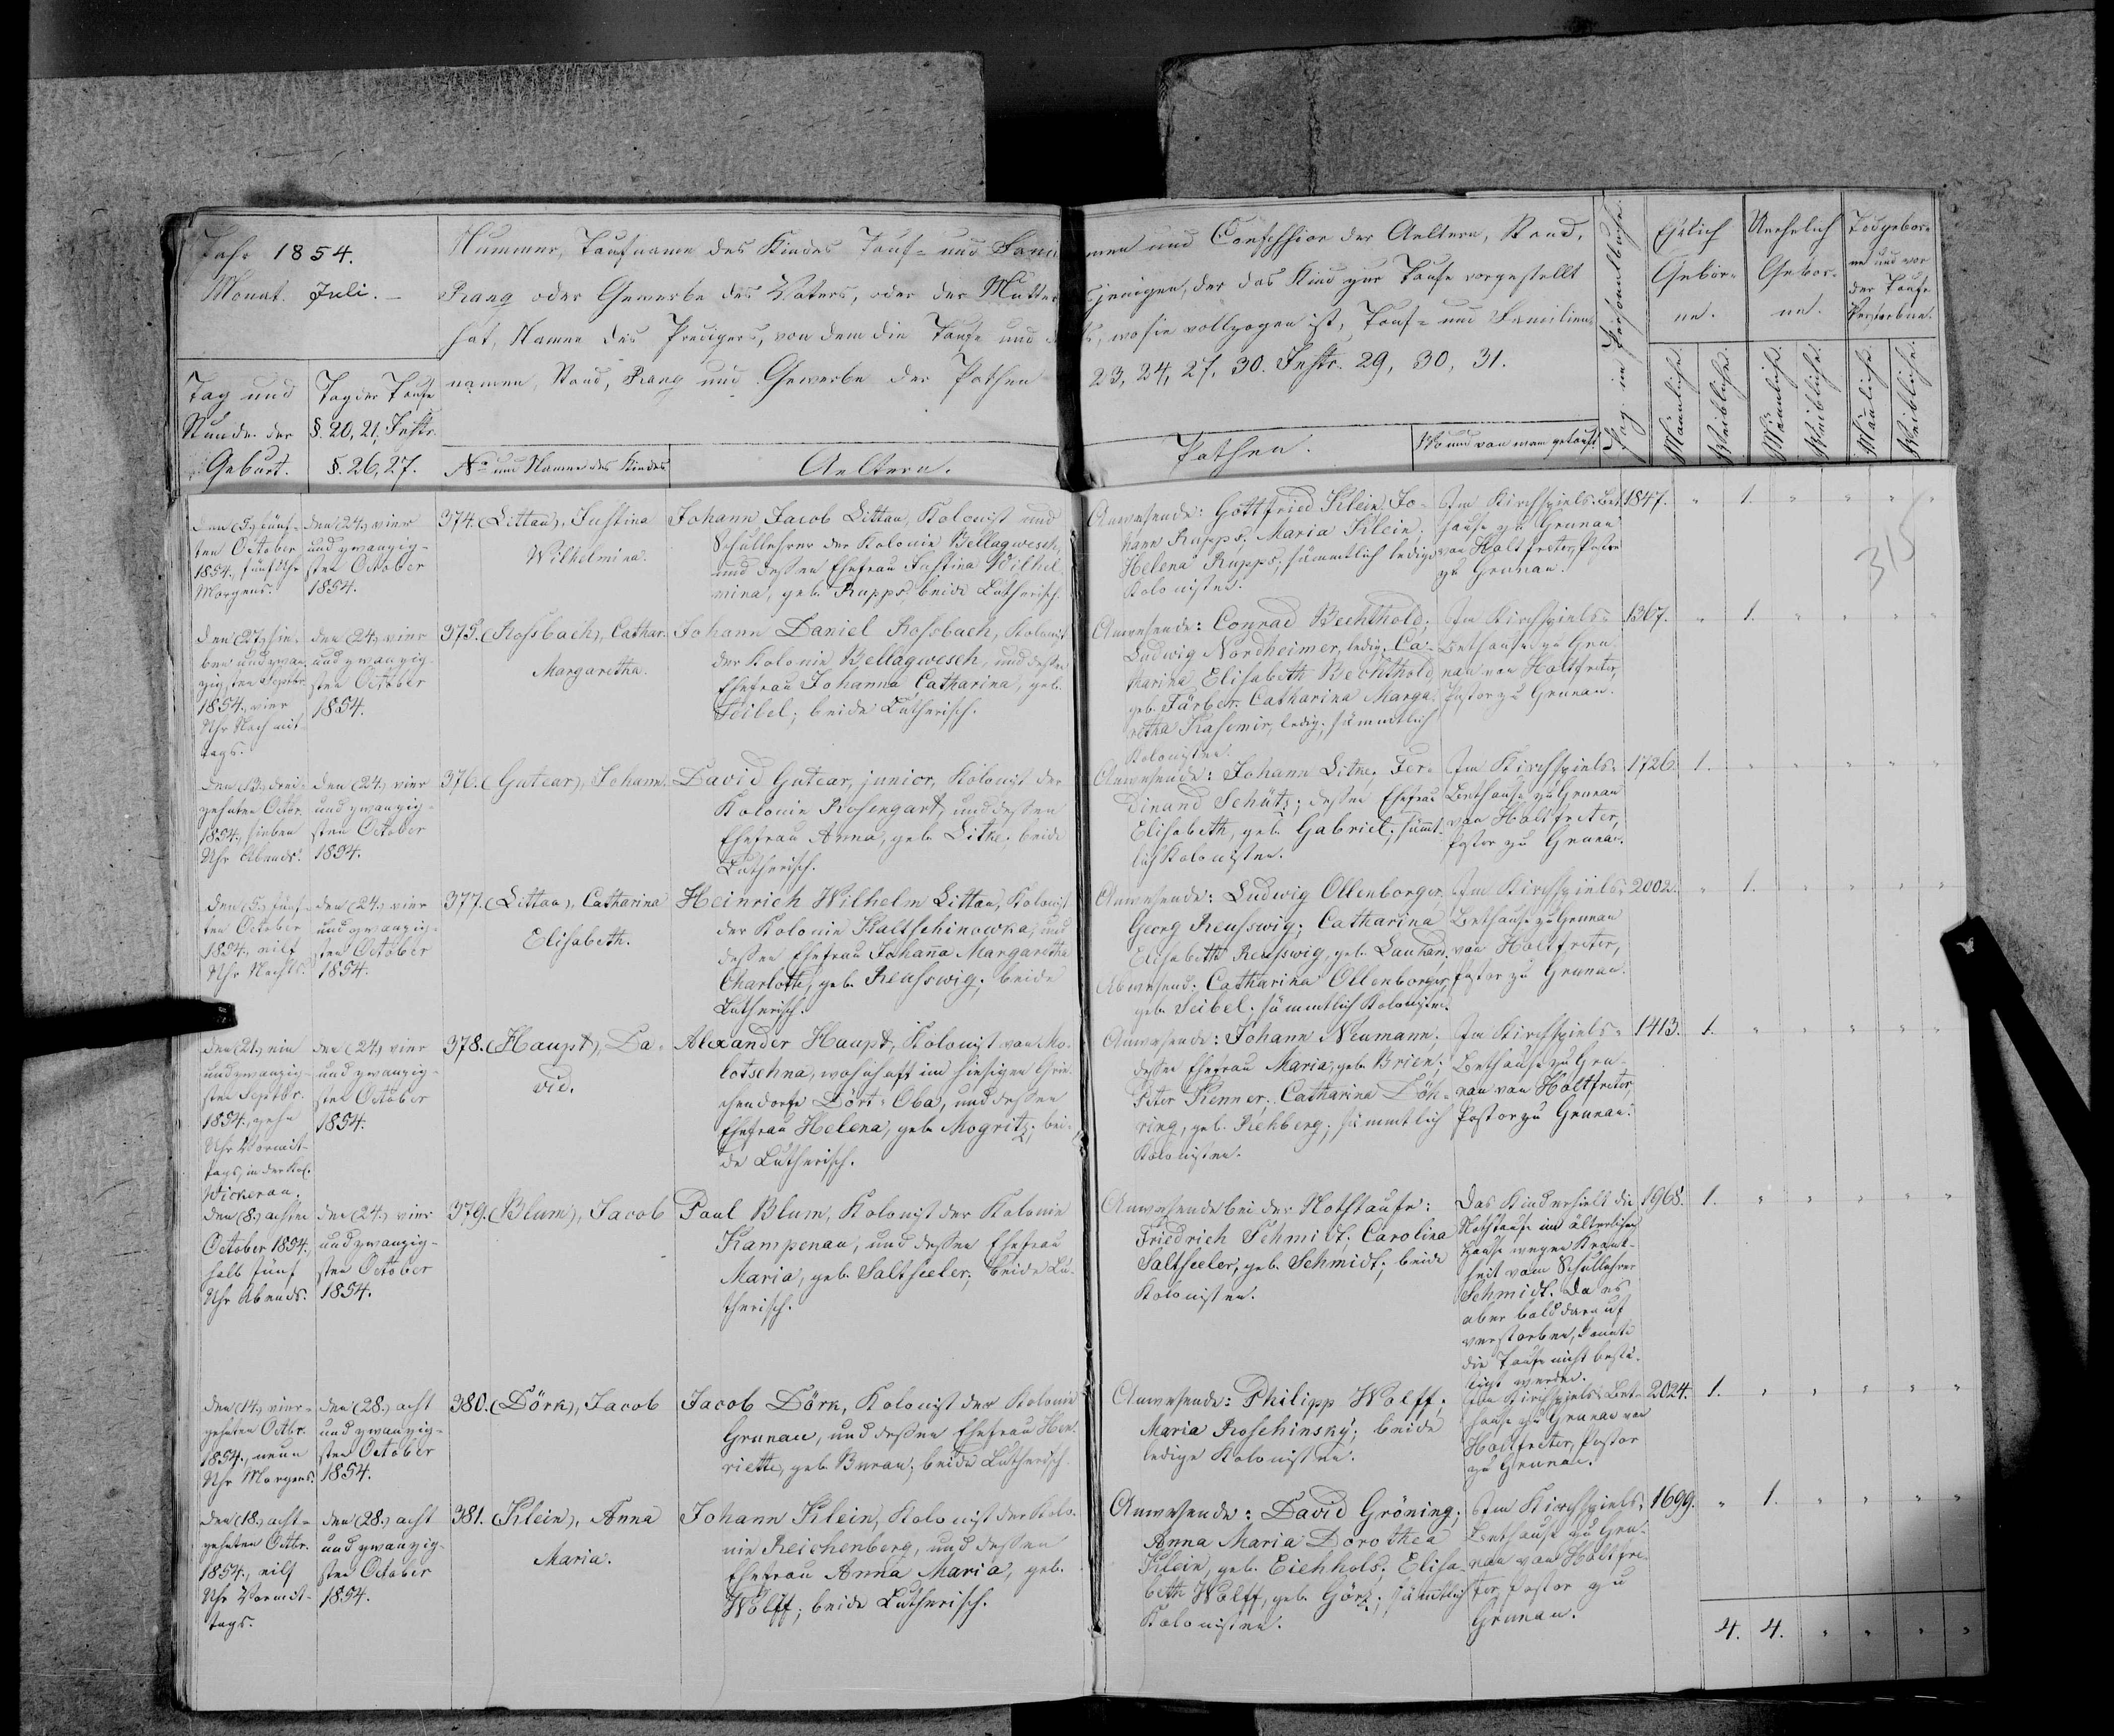 Jahr 1854.
Monat. Juli. —
Nummer, Taufname des Kindes Tauf- und Fami
Rang oder Gewerbe des Vaters, oder der Mutter
hat, Name des Predigers, von dem die Taufe und d
namen, Stand, Rang und Gewerbe der Pathen
Tag und
Stunde der
Geburt.
Tag der Taufe
§. 20, 21, Instr.
§. 26, 27.
No und Name des Kindes
Aeltern.
men und Confession der Aeltern, Stand,
sjenigen, der das Kind zur Taufe vorgestellt
wo sie vollzogen ist, Tauf- und Familien-
23, 24, 27, 30. Instr. 29, 30, 31.
Pathen.
Wo und von wem getauft.
Pag. im Personalbuche.
Ehelich
Gebor-
ne.
Unehelich
Gebor-
ne.
Todgebor-
ne und vor
der Taufe
Verstorbne.
Männliche.
Weibliche.
Männliche.
Weibliche.
Männliche.
Weibliche.
den (5.) fünf-
ten October
1854., fünf Uhr
Morgens.
den (24.) vier
und zwanzig-
sten October
1854.
374. (Littau), Justina
Wilhelmina.
Johann Jacob Littau, Kolonist und
Schullehrer der Kolonie Bellagwesch,
und dessen Ehefrau Justina Wilhel-
mina, geb. Rupps; beide Lutherisch.
Anwesende: Gottfried Klein; Jo-
hann Rupps; Maria Klein;
Helena Rupps; sämmtlich ledige
Kolonisten.
Im Kirchspiels-Bet-
hause zu Grunau
von Holtfreter, Pastor
zu Grunau.
1847. " 1. " " " "
315
den (27.) sie-
ben und zwan-
zigsten Septbr.
1854., vier
Uhr Nachmit-
tags.
den (24.) vier
und zwanzig-
sten October
1854.
375. (Rossbach), Cathar.
Margaretha.
Johann Daniel Rossbach, Kolonist
der Kolonie Bellagwesch, und dessen
Ehefrau Johanna Catharina, geb.
Seibel; beide Lutherisch.
Anwesende: Conrad Bechthold;
Ludwig Nordheimer, ledig; Ca-
tharina Elisabeth Bechthold,
geb. Färber; Catharina Marga-
retha Kasemir, ledig; sämmtlich
Kolonisten.
Im Kirchspiels-
Bethause zu Gru-
nau von Holtfreter,
Pastor zu Grunau.
1367. " 1. " " " "
den (13.) drei-
zehnten Octbr.
1854., sieben
Uhr Abends.
den (24.) vier
und zwanzig-
sten October
1854.
376. (Gutcar), Johann.
David Gutcar, junior, Kolonist der
Kolonie Rosengart, und dessen
Ehefrau Anna, geb. Litke; beide
Lutherisch.
Anwesende: Johann Litke; Fer-
dinand Schütz; dessen Ehefrau
Elisabeth, geb. Gabriel; sämt-
lich Kolonisten.
Im Kirchspiels-
Bethause zu Grunau
von Holtfreter,
Pastor zu Grunau.
1726. 1. " " " " "
den (5.) fünf-
ten October
1854., eilf
Uhr Nachts.
den (24.) vier
und zwanzig-
sten October
1854.
377. (Littau), Catharina
Elisabeth.
Heinrich Wilhelm Littau, Kolonist
der Kolonie Kaltschinowka, und
dessen Ehefrau Johanna Margaretha
Charlotte, geb. Reusswig; beide
Lutherisch.
Anwesende: Ludwig Ollenborger;
Georg Reusswig; Catharina
Elisabeth Reusswig, geb. Lauhan;
Abwesend: Catharina Ollenborger,
geb. Seibel; sämmtlich Kolonisten.
Im Kirchspiels-
Bethause zu Grunau
von Holtfreter,
Pastor zu Grunau.
2002. " 1. " " " "
den (21.) ein
und zwanzig-
sten Septbr.
1854., zehn
Uhr Vormit-
tags, in der Kol.
Wickerau.
den (24.) vier
und zwanzig-
sten October
1854.
378. (Haupt), Da-
vid.
Alexander Haupt, Kolonist von Mo-
lotschna, wohnhaft im hiesigen Grie-
chendorfe Dort-Oba, und dessen
Ehefrau Helena, geb. Mogritz; bei-
de Lutherisch.
Anwesende: Johann Neumann;
dessen Ehefrau Maria, geb. Brien;
Peter Kenner; Catharina Döh-
ring, geb. Rehberg; sämmtlich
Kolonisten.
Im Kirchspiels-
Bethause zu Gru-
nau von Holtfreter,
Pastor zu Grunau.
1413. 1. " " " " "
den (8.) achten
October 1854.,
halb fünf
Uhr Abends.
den (24.) vier
und zwanzig-
sten October
1854.
379. (Blum), Jacob
Paul Blum, Kolonist der Kolonie
Kampenau, und dessen Ehefrau
Maria, geb. Saltseeler; beide Lu-
therisch.
Anwesende bei der Nothtaufe:
Friedrich Schmidt; Carolina
Saltseeler, geb. Schmidt; beide
Kolonisten.
Das Kind erhielt die
Nothtaufe im älterlichen
Hause wegen Krank-
heit vom Schullehrer
Schmidt. Da es
aber bald darauf
verstorben, konnte
die Taufe nicht bestä-
tigt werden.
1968. 1. " " " " "
den (14.) vier-
zehnten Octbr.
1854., neun
Uhr Morgens.
den (28.) acht
und zwanzig-
sten October
1854.
380. (Dörk), Jacob
Jacob Dörk, Kolonist der Kolonie
Grunau, und dessen Ehefrau Hen-
riette, geb. Buran; beide Lutherisch.
Anwesende: Philipp Wolff;
Maria Roschinsky; beide
ledige Kolonisten.
Im Kirchspiels-Bet-
hause zu Grunau von
Holtfreter, Pastor
zu Grunau.
2024. 1. " " " " "
den (18.) acht-
zehnten Octbr.
1854., eilf
Uhr Vormit-
tags.
den (28.) acht
und zwanzig-
sten October
1854.
381. (Klein), Anna
Maria.
Johann Klein, Kolonist der Kolo-
nie Reichenberg, und dessen
Ehefrau Anna Maria, geb.
Wolff; beide Lutherisch.
Anwesende: David Gröning;
Anna Maria Dorothea
Klein, geb. Eichholz; Elisa-
beth Wolff, geb. Görtz; sämmtlich
Kolonisten.
Im Kirchspiels-
Bethause zu Gru-
nau von Holtfre-
ter, Pastor zu
Grunau.
1699. " 1. " " " "
4. 4. " " " "